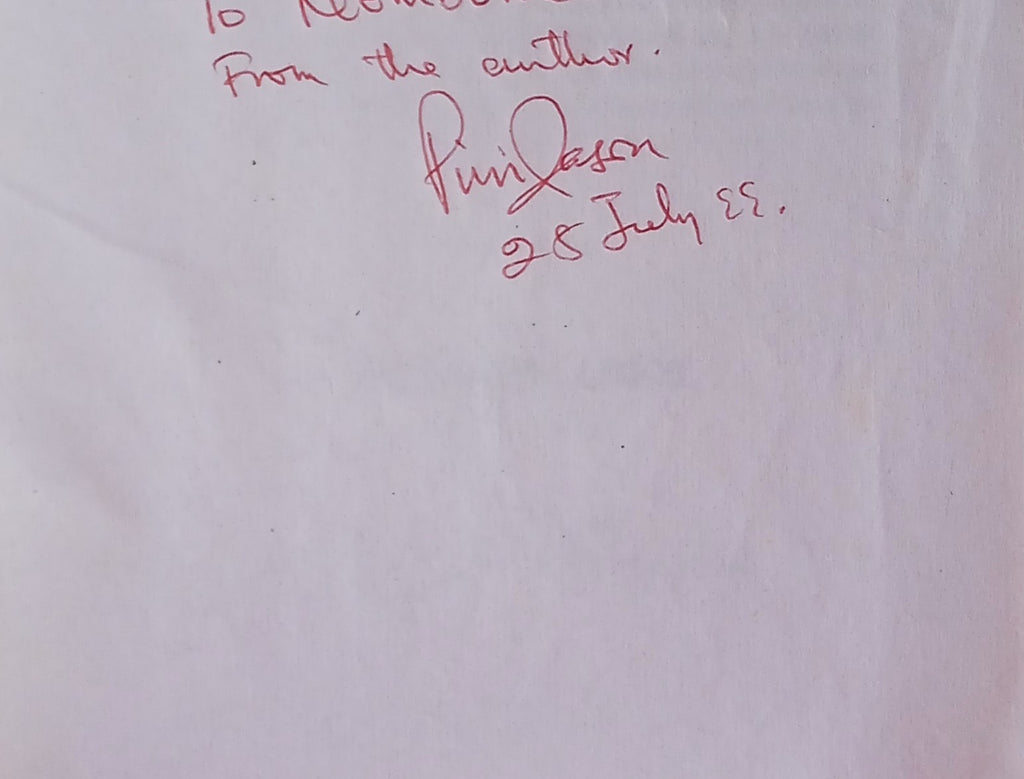 To
From the author.
Pini Jason
28 July 88.